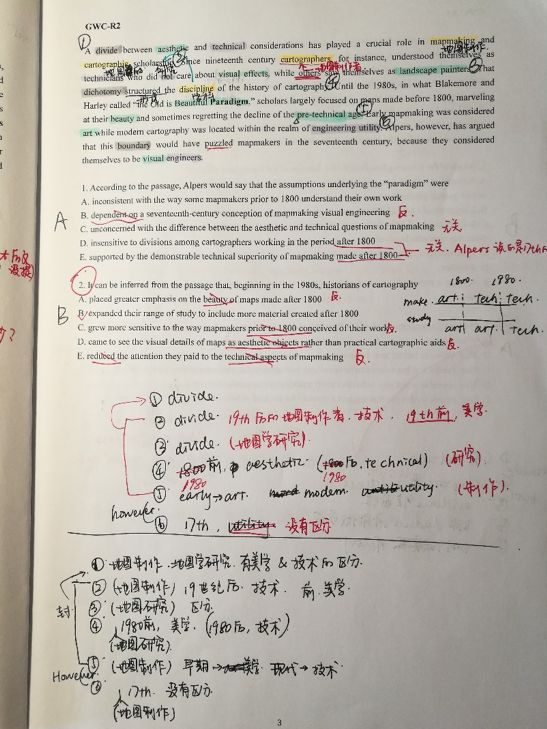 GWC-R2
A divide between aesthetic and technical considerations has played a crucial role in mapmaking and
cartographic scholarship. Since nineteenth century cartographers, for instance, understood themselves as
technicians who did not care about visual effects, while others saw themselves as landscape painters. That
dichotomy structured the discipline of the history of cartography. Until the 1980s, in what Blakemore and
Harley called "the Old is Beautiful Paradigm," scholars largely focused on maps made before 1800, marveling
at their beauty and sometimes regretting the decline of the pre-technical age. Early mapmaking was considered
art while modern cartography was located within the realm of engineering utility. Alpers, however, has argued
that this boundary would have puzzled mapmakers in the seventeenth century, because they considered
themselves to be visual engineers.
1. According to the passage, Alpers would say that the assumptions underlying the "paradigm" were
A. inconsistent with the way some mapmakers prior to 1800 understand their own work
A
B. dependent on a seventeenth-century conception of mapmaking visual engineering 反.
C. unconcerned with the difference between the aesthetic and technical questions of mapmaking 无关
D. insensitive to divisions among cartographers working in the period after 1800
E. supported by the demonstrable technical superiority of mapmaking made after 1800
无关. Alpers
2. It can be inferred from the passage that, beginning in the 1980s, historians of cartography
1800. 1980.
A. placed greater emphasis on the beauty of maps made after 1800 反.
make. art. tech. tech.
B
B. expanded their range of study to include more material created after 1800
study
art art. tech.
C. grew more sensitive to the way mapmakers prior to 1800 conceived of their work 反.
D. came to see the visual details of maps as aesthetic objects rather than practical cartographic aids 反.
E. reduced the attention they paid to the technical aspects of mapmaking 反.
① divide.
② divide. 19th 后 地图制作者. 技术. 19th前, 美学.
③ divide. (地图学研究).
④ 前, aesthetic (后, technical) (研究)
1980 1980
⑤ early→art. modern utility. (制作).
however.
⑥ 17th, 没有区分
① 地图制作. 地图学研究. 有美学 & 技术的区分.
② (地图制作) 19世纪后. 技术. 前. 美学.
③ (地图研究) 区分.
④ 1980前, 美学. (1980后, 技术)
(地图研究)
⑤ (地图制作) 早期→美学 现代→技术
However
⑥ 17th 没有区分
(地图制作)
3